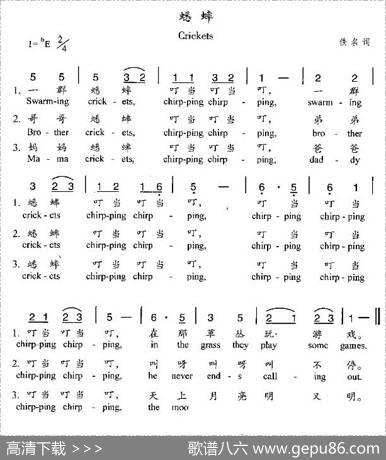 蟋 蟀
Crickets
1=♭E 2/4
佚 名 词
5 5 | 5 3 2 | 1 1 3 2 | 1 — | 2 2 |
1. 一 群 蟋 蟀 叮 当 叮 当 叮, 一 群
Swarm-ing crick - ets, chirp-ping chirp - ping, swarm - ing
2. 哥 哥 蟋 蟀 叮 当 叮 当 叮, 弟 弟
Bro - ther crick - ets, chirp-ping chirp - ping, bro - ther
3. 妈 妈 蟋 蟀 叮 当 叮 当 叮, 爸 爸
Ma - ma crick - ets, chirp-ping chirp - ping, dad - dy
3 2 3 | 1 2 1 6 | 5 — | 6 · 5 | 6 1 |
1. 蟋 蟀 叮 当 叮 当 叮, 叮 当 叮 当
crick - cts chirp-ping chirp - ping, chirp - ping chirp - ping
2. 蟋 蟀 叮 当 叮 当 叮, 叮 当 叮 当
crick - ets chirp-ping chirp - ping, chirp - ping chirp - ping
3. 蟋 蟀 叮 当 叮 当 叮, 叮 当 叮 当
crick - ets chirp-ping chirp - ping, chirp - ping chirp - ping
2 1 2 3 | 5 — | 6 · 5 | 3 5 | 2 1 | 2 3 | 1 — ‖
1. 叮 当 叮 当 叮, 在 那 草 丛 玩 游 戏。
chirp-ping chirp - ping, in the grass they play some games.
2. 叮 当 叮 当 叮, 叫 呀 叫 呀 叫 不 停。
chirp-ping chirp - ping, he never end - s call - ing out.
3. 叮 当 叮 当 叮, 天 上 月 亮 明 又 明。
chirp-ping chirp - ping, the moo
高清下载 >>> 歌谱八六 www.gepu86.com